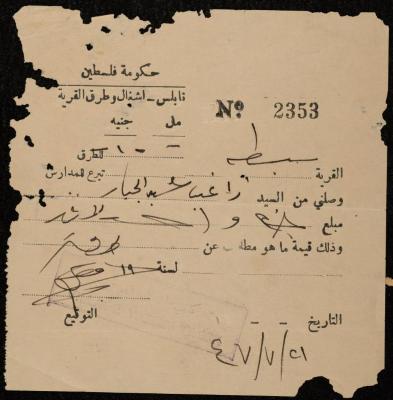 حكومة فلسطين
نابلس – اشغال وطرق القرية
Nº 2353
مل جنيه
- ١٠٠ للطرق
القرية سبسطيه تبرع للمدارس
وصلني من السيد راغب عبد الجبار
مبلغ لا غير
وذلك قيمة ما هو مطلوب عن
لسنة ١٩
التاريخ التوقيع
٢١/٧/٤٧